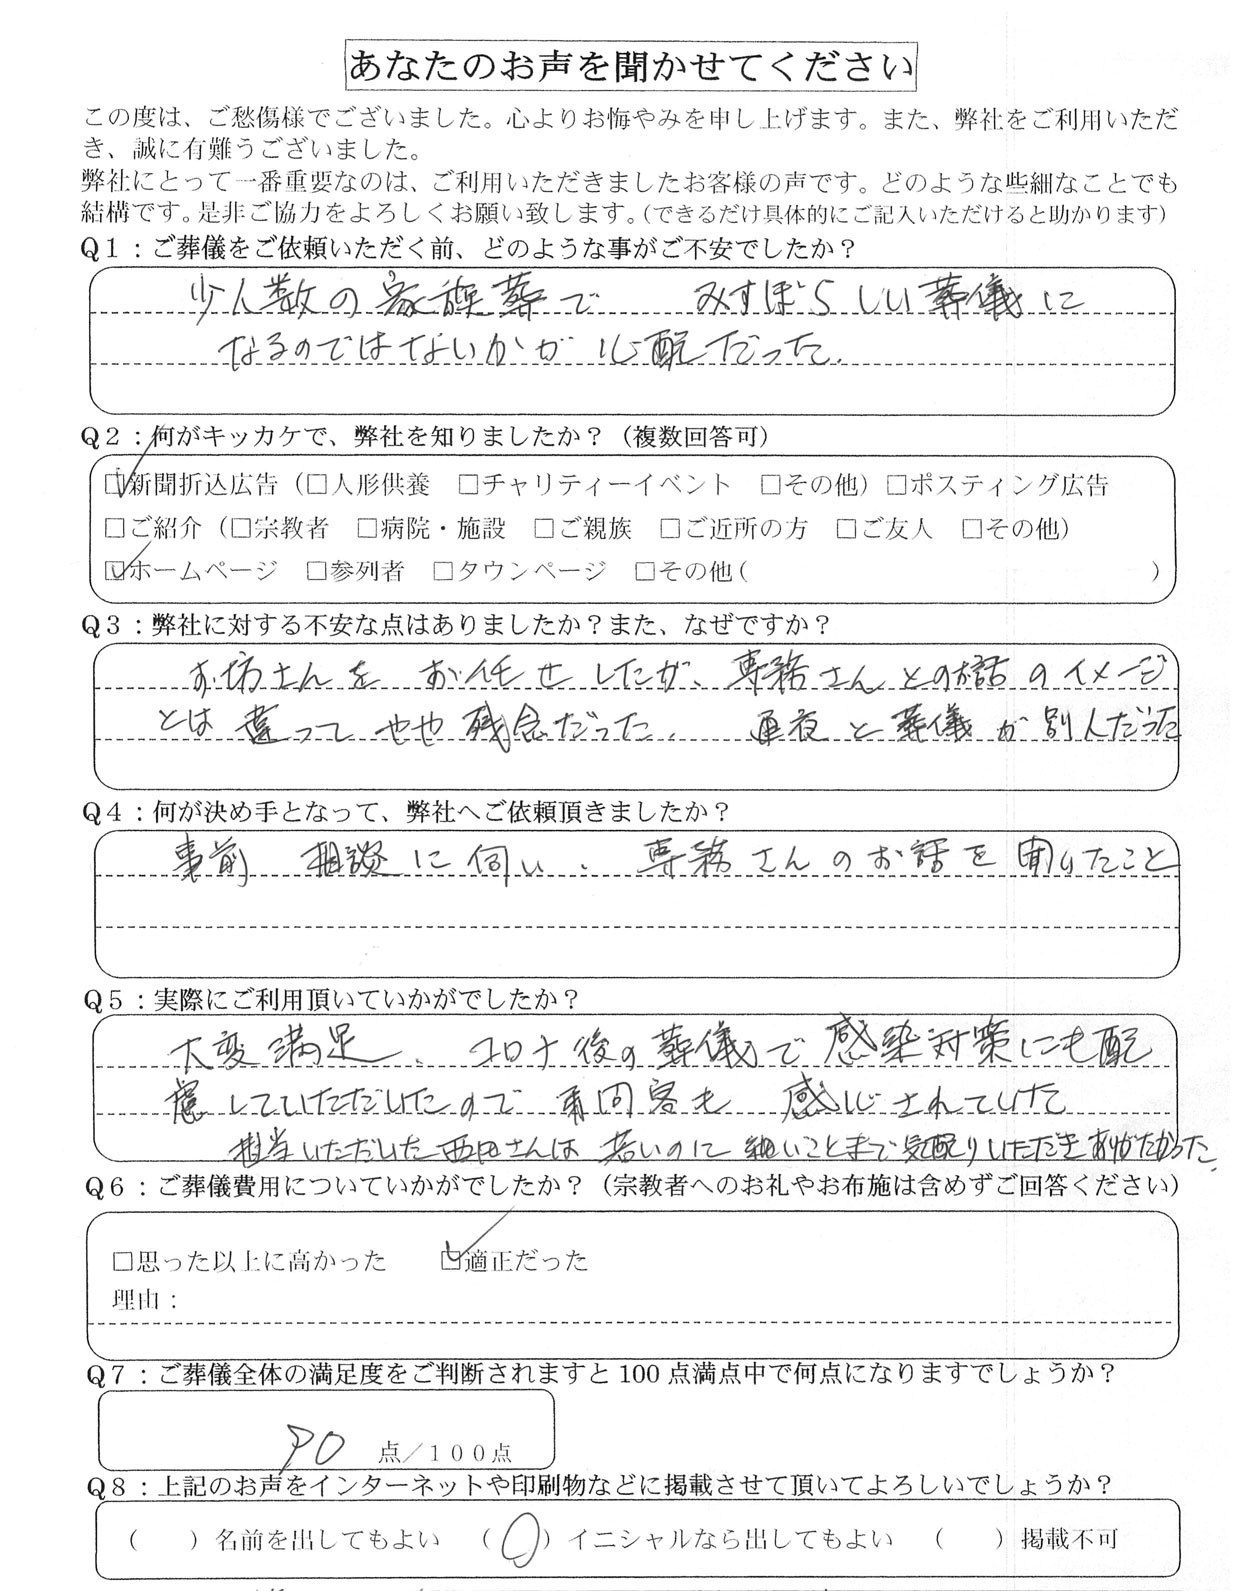 あなたのお声を聞かせてください
この度は、ご愁傷様でございました。心よりお悔やみを申し上げます。また、弊社をご利用いただ
き、誠に有難うございました。
弊社にとって一番重要なのは、ご利用いただきましたお客様の声です。どのような些細なことでも
結構です。是非ご協力をよろしくお願い致します。（できるだけ具体的にご記入いただけると助かります）
Q1：ご葬儀をご依頼いただく前、どのような事がご不安でしたか？
少人数の家族葬で みすぼらしい葬儀に
なるのではないかが心配だった.
Q2：何がキッカケで、弊社を知りましたか？（複数回答可）
☑新聞折込広告（□人形供養 □チャリティーイベント □その他）□ポスティング広告
□ご紹介（□宗教者 □病院・施設 □ご親族 □ご近所の方 □ご友人 □その他）
☑ホームページ □参列者 □タウンページ □その他（ ）
Q3：弊社に対する不安な点はありましたか？また、なぜですか？
お坊さんを お任せしたが、専務さんとのお話のイメージ
とは違って やや残念だった. 通夜と葬儀が別人だった
Q4：何が決め手となって、弊社へご依頼頂きましたか？
事前 相談に伺い、専務さんのお話を聞けたこと
Q5：実際にご利用頂いていかがでしたか？
大変満足、コロナ後の葬儀で感染対策にも配
慮していただいたので 弔問客も 感心されていた
担当いただいた西田さんは 若いのに 細いことまで気配りいただきありがたかった.
Q6：ご葬儀費用についていかがでしたか？（宗教者へのお礼やお布施は含めずご回答ください）
□思った以上に高かった ☑適正だった
理由：
Q7：ご葬儀全体の満足度をご判断されますと100点満点中で何点になりますでしょうか？
90 点／１００点
Q8：上記のお声をインターネットや印刷物などに掲載させて頂いてよろしいでしょうか？
（ ）名前を出してもよい （○）イニシャルなら出してもよい （ ）掲載不可